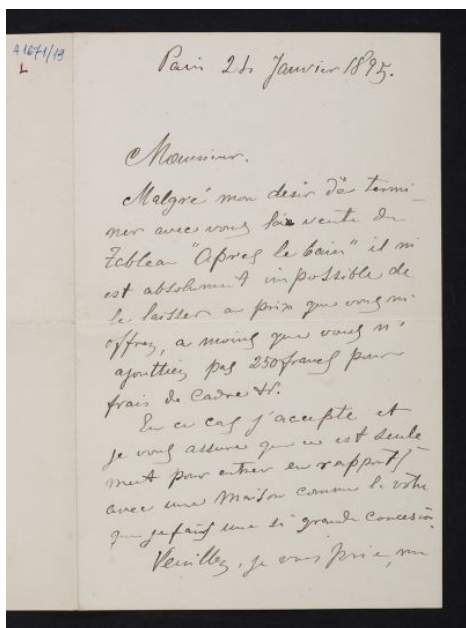 A1671/19
L
Paris 24 Janvier 1895.
Monsieur.
Malgré mon desir de termi-
ner avec vous la vente du
Tableau "Apres le bain" il m'
est absolument impossible de
le laisser au prix que vous m'
offrez, a moins que vous n'
ajouttiez pas 250 francs pour
frais de Cadre &.
En ce cas j'accepte et
je vous assure que ce est seule
ment pour entrer en rapports
avec une Maison comme la vôtre
que je fais une si grande Concesión.
Veuillez, je vous prie, me